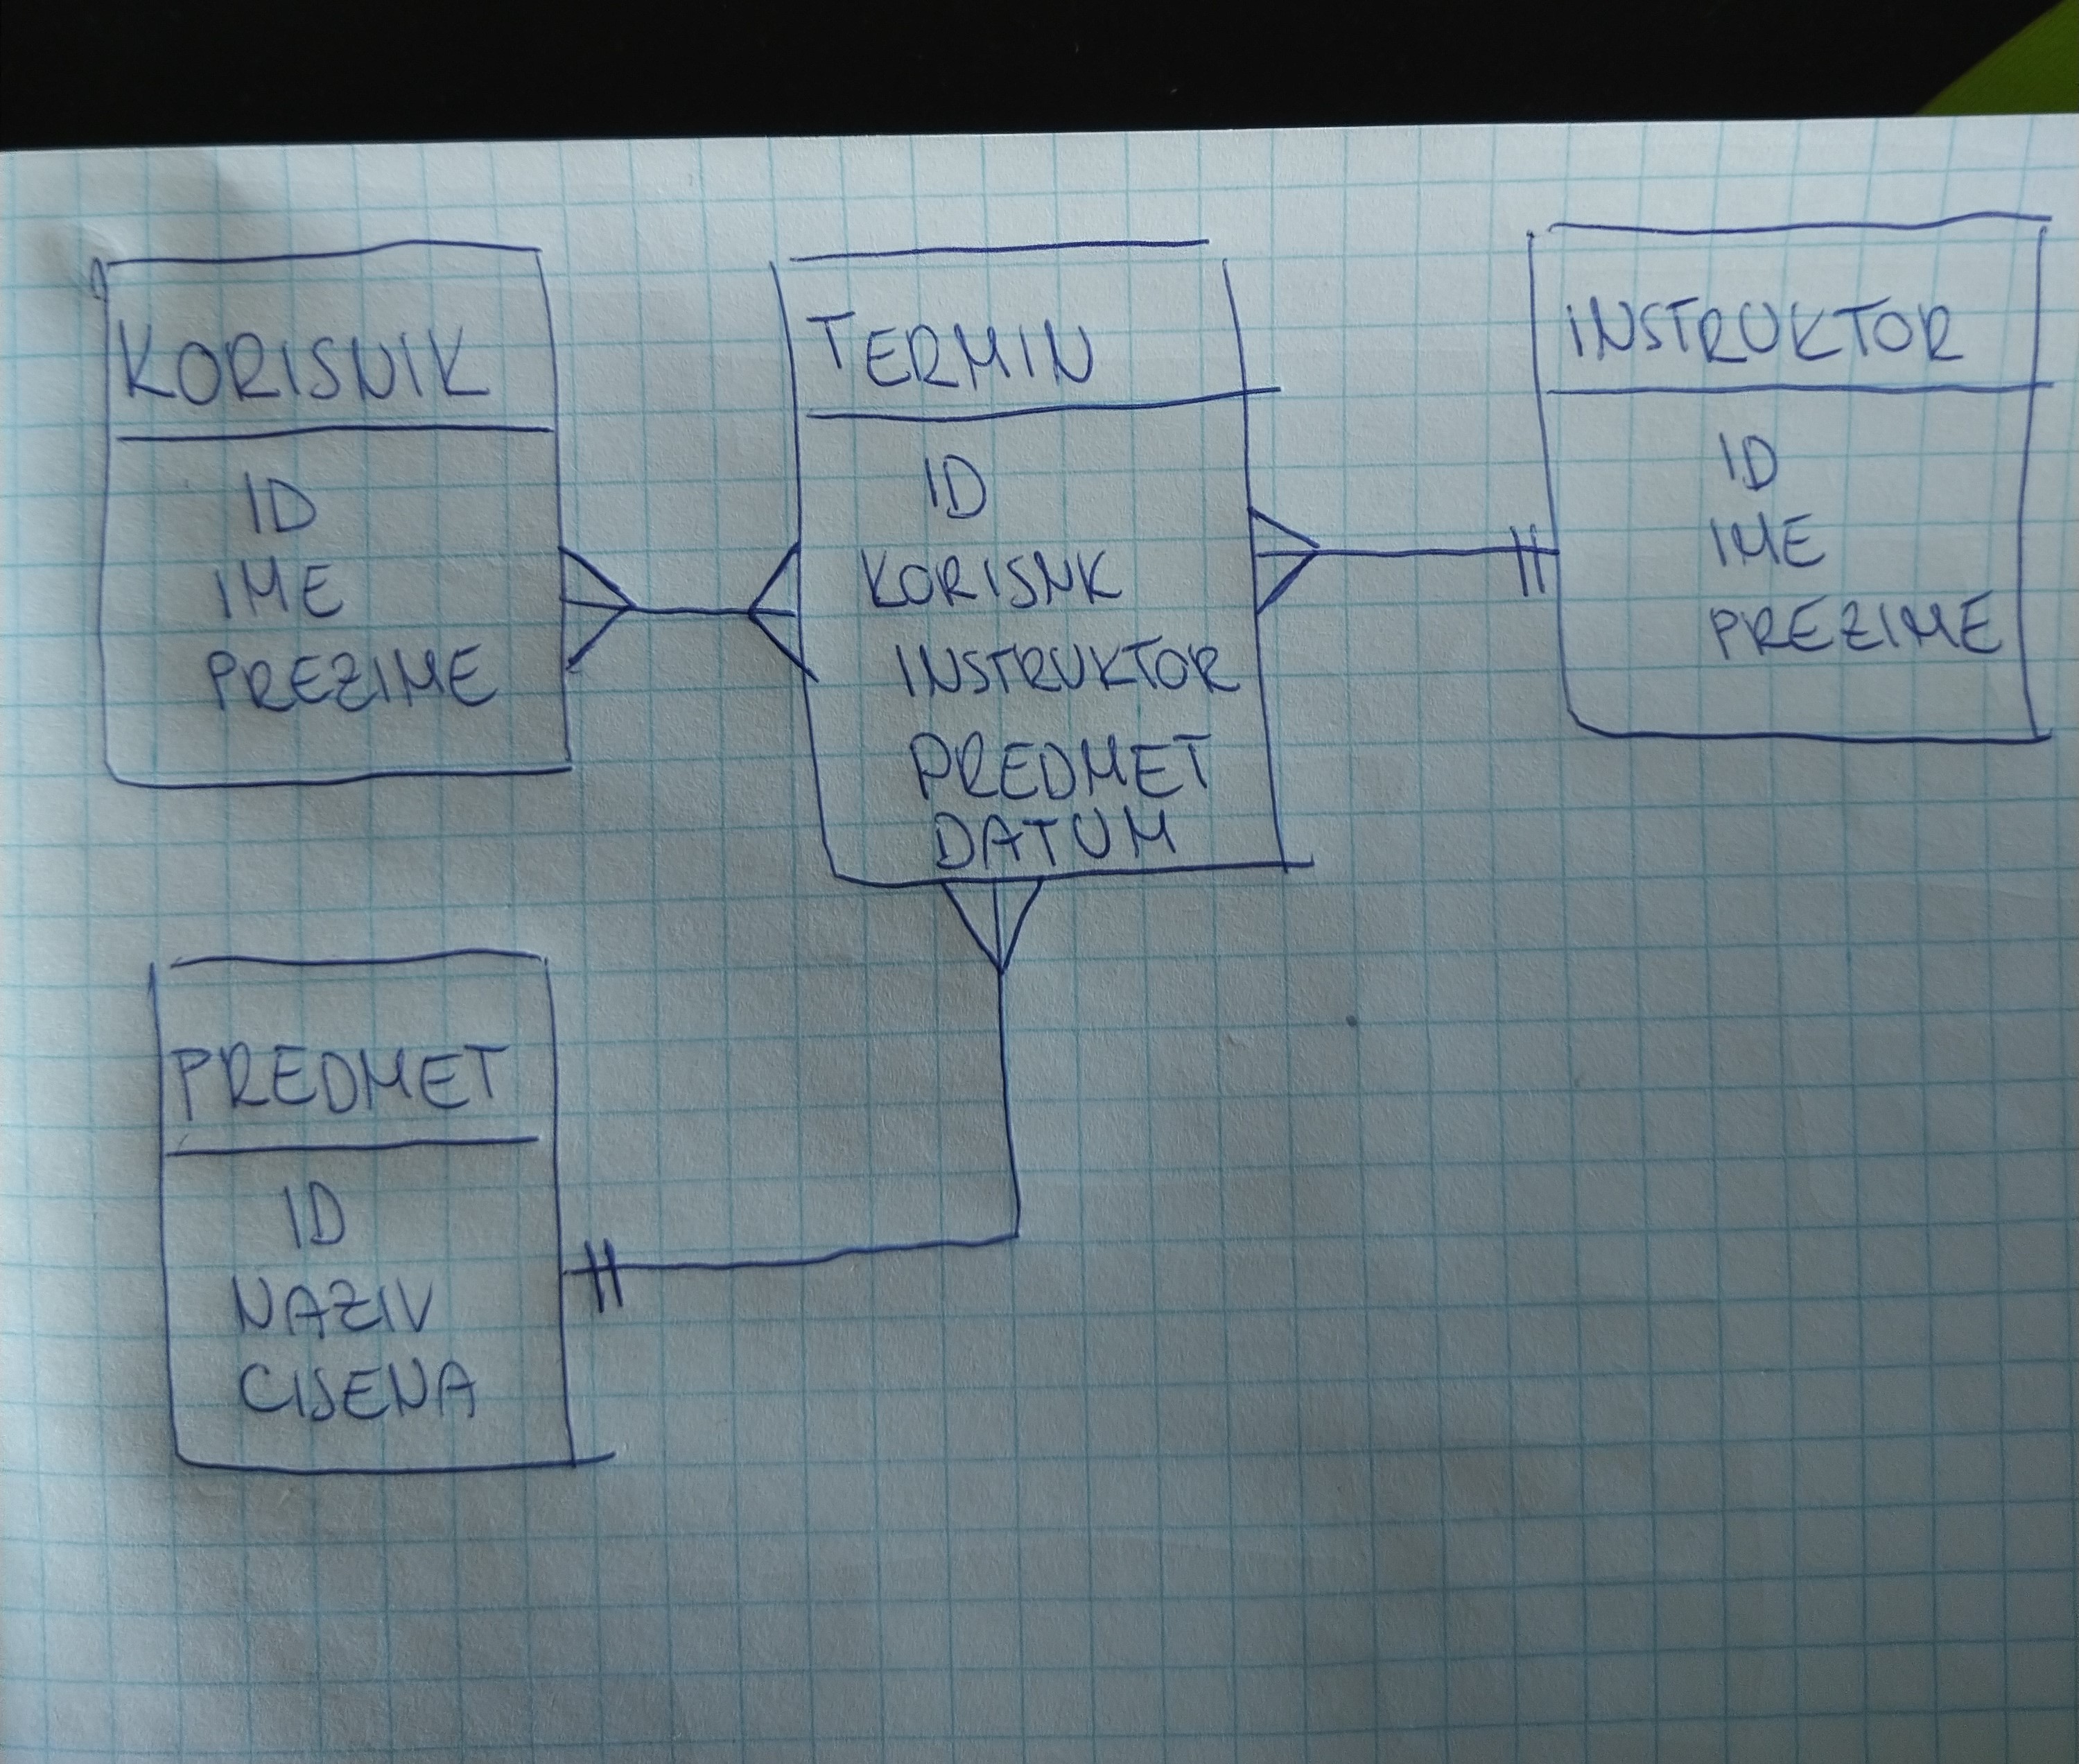 KORISNIK
ID
IME
PREZIME
TERMIN
ID
KORISNK
INSTRUKTOR
PREDMET
DATUM
INSTRUKTOR
ID
IME
PREZIME
PREDMET
ID
NAZIV
CIJENA